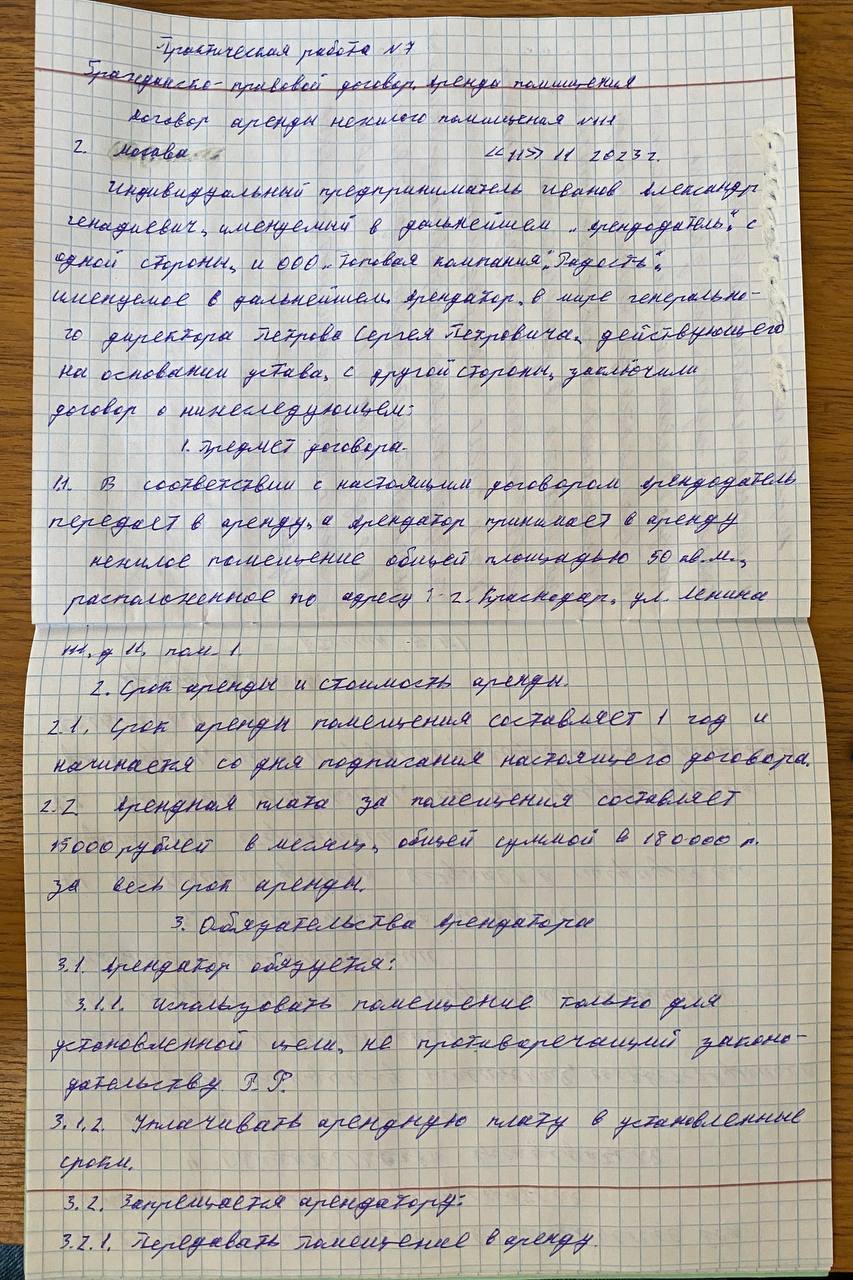 Практическая работа №7
Гражданско-правовой договор. Аренды помищения
Договор аренды нежилого помищения №111
г. Москва «11» 11 2023 г.
Индивидуальный предприниматель Иванов Александр
Генадиевич, именуемый в дальнейшем „Арендодатель", с
одной стороны, и ООО „Топовая компания", Радость",
именуемое в дальнейшем, Арендатор, в мире генерально-
го директора Петрова Сергея Петровича, действующего
на основании устава, с другой стороны, заключили
договор о нижеследующем:
1. Предмет договора.
1.1. В соответствии с настоящим договором Арендодатель
передаёт в аренду, а Арендатор принимает в аренду
нежилое помещение общей площадью 50 кв.м.,
расположенное по адресу: г. Краснодар, ул. Ленина
д 11, пом. 1.
2. Срок аренды и стоимость аренды.
2.1. Срок аренды помещения составляет 1 год и
начинается со дня подписания настоящего договора.
2.2 Арендная плата за помещения составляет
15000 рублей в месяц, общей суммой в 180000 р.
за весь срок аренды.
3. Обязательства Арендатора
3.1. Арендатор обязуется:
3.1.1. Использовать помещение только для
установленной цели, не противоречащий законо-
дательству Р.Р.
3.1.2. Уплачивать арендную плату в установленные
сроки.
3.2. Запрещается арендатору:
3.2.1. Передавать Помещение в аренду.